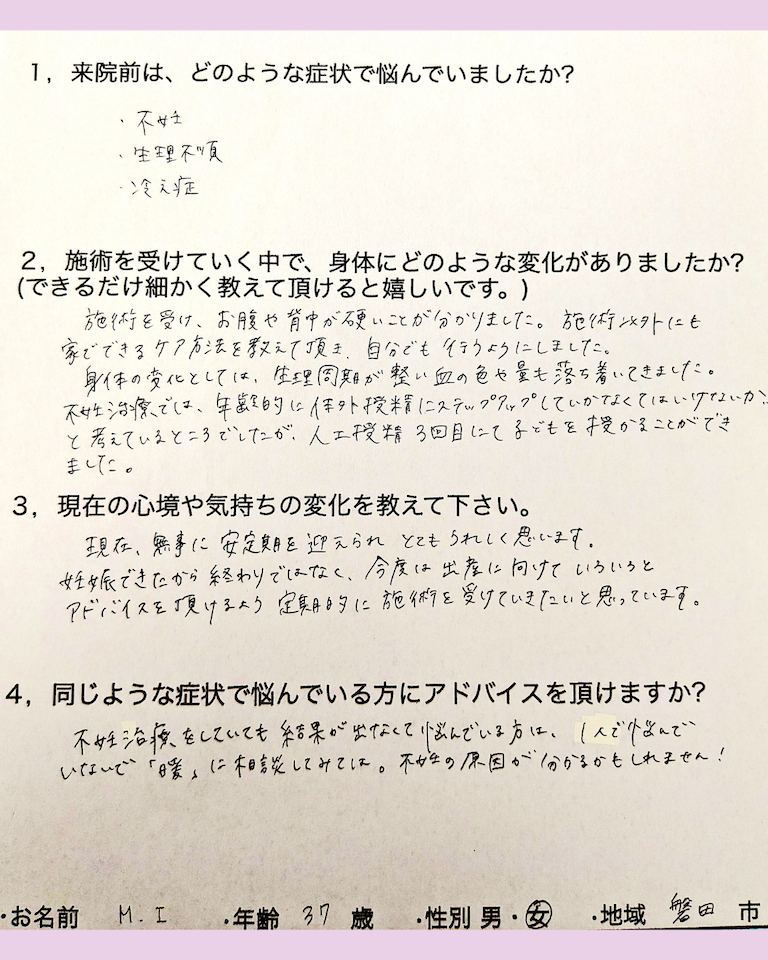 1，来院前は、どのような症状で悩んでいましたか?
・不妊
・生理不順
・冷え症
2，施術を受けていく中で、身体にどのような変化がありましたか?
(できるだけ細かく教えて頂けると嬉しいです。)
施術を受け、お腹や背中が硬いことが分かりました。施術以外にも
家でできるケア方法を教えて頂き、自分でも行うようにしました。
身体の変化としては、生理周期が整い血の色や量も落ち着いてきました。
不妊治療では、年齢的に体外授精にステップアップしていかなくてはいけないか、
と考えているところでしたが、人工授精3回目にて子どもを授かることができ
ました。
3，現在の心境や気持ちの変化を教えて下さい。
現在、無事に安定期を迎えられとてもうれしく思います。
妊娠できたから終わりではなく、今度は出産に向けていろいろと
アドバイスを頂けるよう定期的に施術を受けていきたいと思っています。
4，同じような症状で悩んでいる方にアドバイスを頂けますか?
不妊治療をしていても結果が出なくて悩んでいる方は、1人で悩んで
いないで「暖」に相談してみては。不妊の原因が分かるかもしれません!
・お名前 M.I ・年齢 37 歳 ・性別 男・女 ・地域 磐田 市